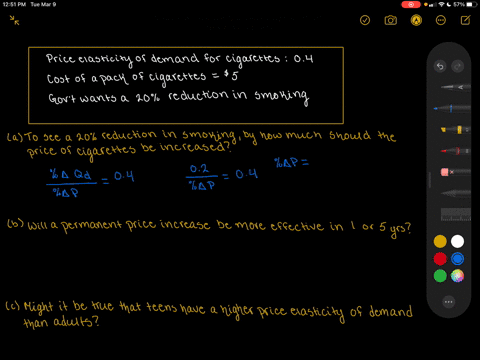 12:51 PM Tue Mar 9
57%
Price elasticity of demand for cigarettes: 0.4
Cost of a pack of cigarettes = $5
Gov't wants a 20% reduction in smoking
(a) To see a 20% reduction in smoking, by how much should the
price of cigarettes be increased?
%Δ Qd / %ΔP = 0.4
0.2 / %ΔP = 0.4
%ΔP =
(b) Will a permanent price increase be more effective in 1 or 5 yrs?
(c) Might it be true that teens have a higher price elasticity of demand
than adults?